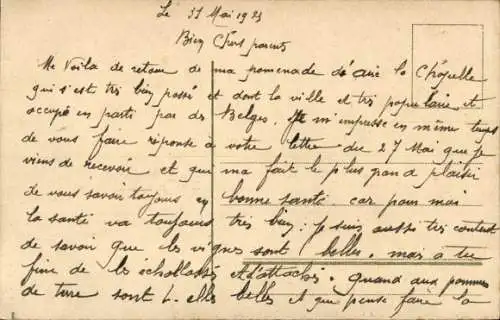 Le 31 Mai 1923
Bien Chers parents
Me Voila de retour de ma promenade d'aix la Chapelle
qui s'est très bien passé et dont la ville et très populaire et
occupé en parti par des Belges. Je m'empresse en même temps
de vous faire réponse a votre lettre du 27 Mai que je
viens de recevoir et qui ma fait le plus grand plaisir
de vous savoir toujours en bonne santé car pour moi
la santé va toujours très bien. Je suis aussi très content
de savoir que les vignes sont belles, mais a tu
fini de les et d'attacher. Quand aux pommes
de terre sont elles belles et que pense faire la